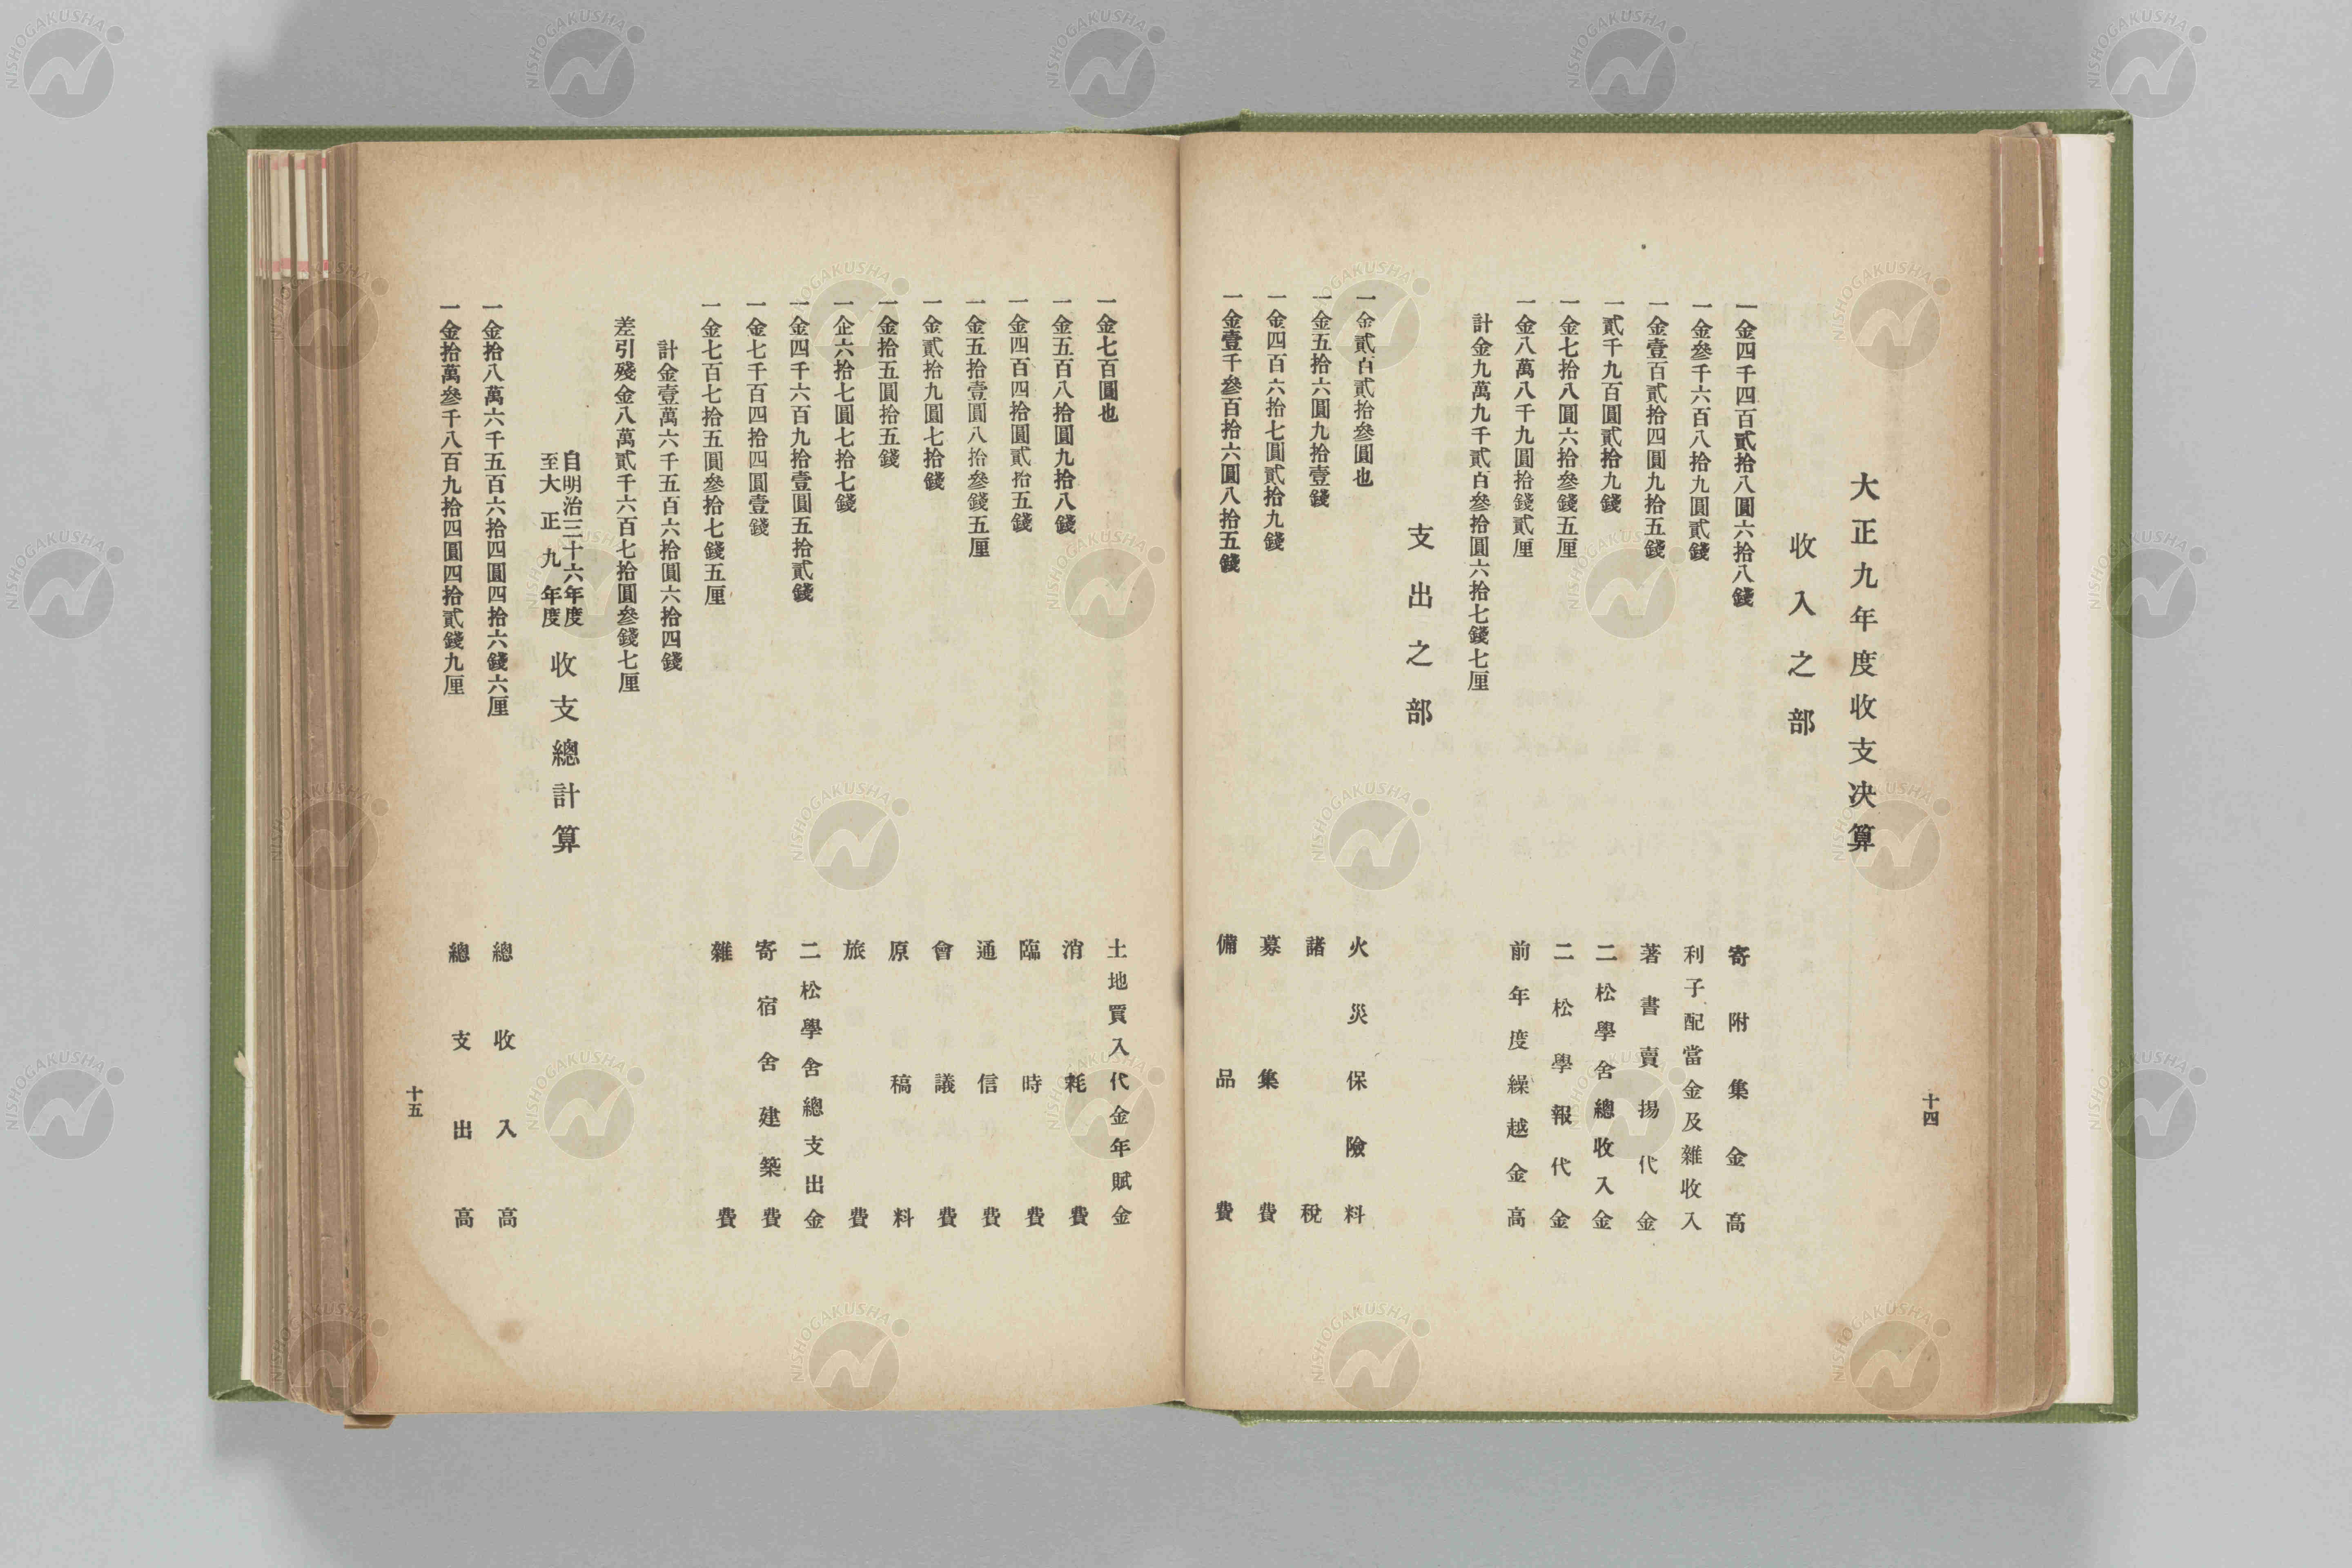 十四
大正九年度收支決算
收入之部
一金四千四百貳拾八圓六拾八錢 寄附集金高
一金參千六百八拾九圓貳錢 利子配當金及雜收入
一金壹百貳拾四圓九拾五錢 著書賣揚代金
一貳千九百圓貳拾九錢 二松學舍總收入金
一金七拾八圓六拾參錢五厘 二松學報代金
一金八萬八千九圓拾錢貳厘 前年度繰越金高
計金九萬九千貳百參拾圓六拾七錢七厘
支出之部
一金貳百貳拾參圓也 火災保險料
一金五拾六圓九拾壹錢 諸稅
一金四百六拾七圓貳拾九錢 募集費
一金壹千參百拾六圓八拾五錢 備品費
一金七百圓也 土地買入代金年賦金
一金五百八拾圓九拾八錢 消耗費
一金四百四拾圓貳拾五錢 臨時費
一金五拾壹圓八拾參錢五厘 通信費
一金貳拾九圓七拾錢 會議費
一金拾五圓拾五錢 原稿料
一企六拾七圓七拾七錢 旅費
一金四千六百九拾壹圓五拾貳錢 二松學舍總支出金
一金七千百四拾四圓壹錢 寄宿舍建築費
一金七百七拾五圓參拾七錢五厘 雜費
計金壹萬六千五百六拾圓六拾四錢
差引殘金八萬貳千六百七拾圓參錢七厘
自明治三十六年度
至大正九年度 收支總計算
一金拾八萬六千五百六拾四圓四拾六錢六厘 總收入高
一金拾萬參千八百九拾四圓四拾貳錢九厘 總支出高
十五
NISHOGAKUSHA